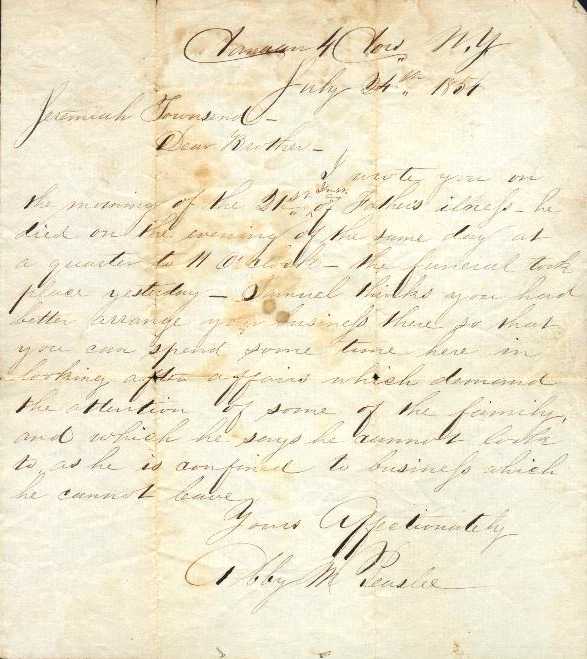 4 Cor's N.Y
July 24th 1851
Jeremiah Townsend -
Dear Brother -
I wrote you on
the morning of the 21st inst of Fathers illness - he
died on the evening of the same day at
a quarter to 11 O'clock - the funeral took
place yesterday - Samuel thinks you had
better arrange your business there so that
you can spend some time here in
looking after affairs which demand
the attention of some of the family,
and which he says he cannot look
to, as he is confined to business which
he cannot leave
Yours Affectionately
Abby M Peaslee